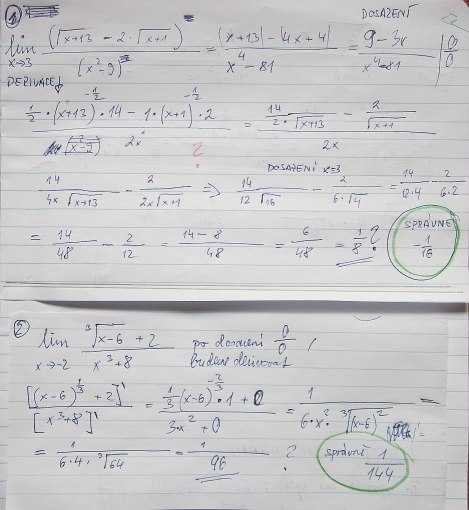 ① DOSAZENÍ
lim x→3 (√x+13 − 2·√x+1) / (x²−9) = (x+13) − (4x+4) / x⁴ − 81 = 9−3x / x⁴−81 | 0/0
DERIVACE ↓
½·(x+13)^-½·14 − 1·(x+1)^-½·2 / 2x = 14/2·√x+13 − 2/√x+1 / 2x
?
DOSAZENÍ x=3
14/4x √x+13 − 2/2x√x+1 ⇒ 14/12√16 − 2/6·√4 = 14/12·4 − 2/6·2
= 14/48 − 2/12 = 14−8/48 = 6/48 = 1/8 ? SPRÁVNĚ −1/16
② lim x→−2 ∛x−6 + 2 / x³+8 po dosazení 0/0 /
budeme derivovat
[(x−6)^⅓ + 2]' / [x³+8]' = ⅓(x−6)^-⅔·1 + 0 / 3x² + 0 = 1 / 6·x²·∛(x−6)² =
= 1/6·4·∛64 = 1/96 ? správně 1/144